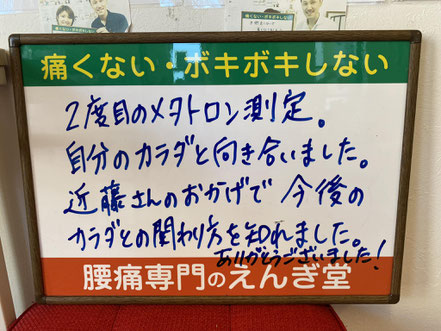 痛くない・ボキボキしない
2度目のメタトロン測定。
自分のカラダと向き合いました。
近藤さんのおかげで 今後の
カラダとの関わり方を知れました。
ありがとうございました!
腰痛専門のえんぎ堂